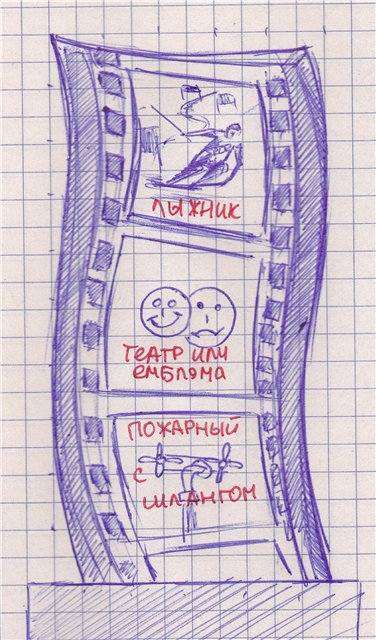 ЛЫЖНИК
ТЕАТР ИЛИ
ЕМБЛЭМА
ПОЖАРНЫЙ
С
ШЛАНГОМ